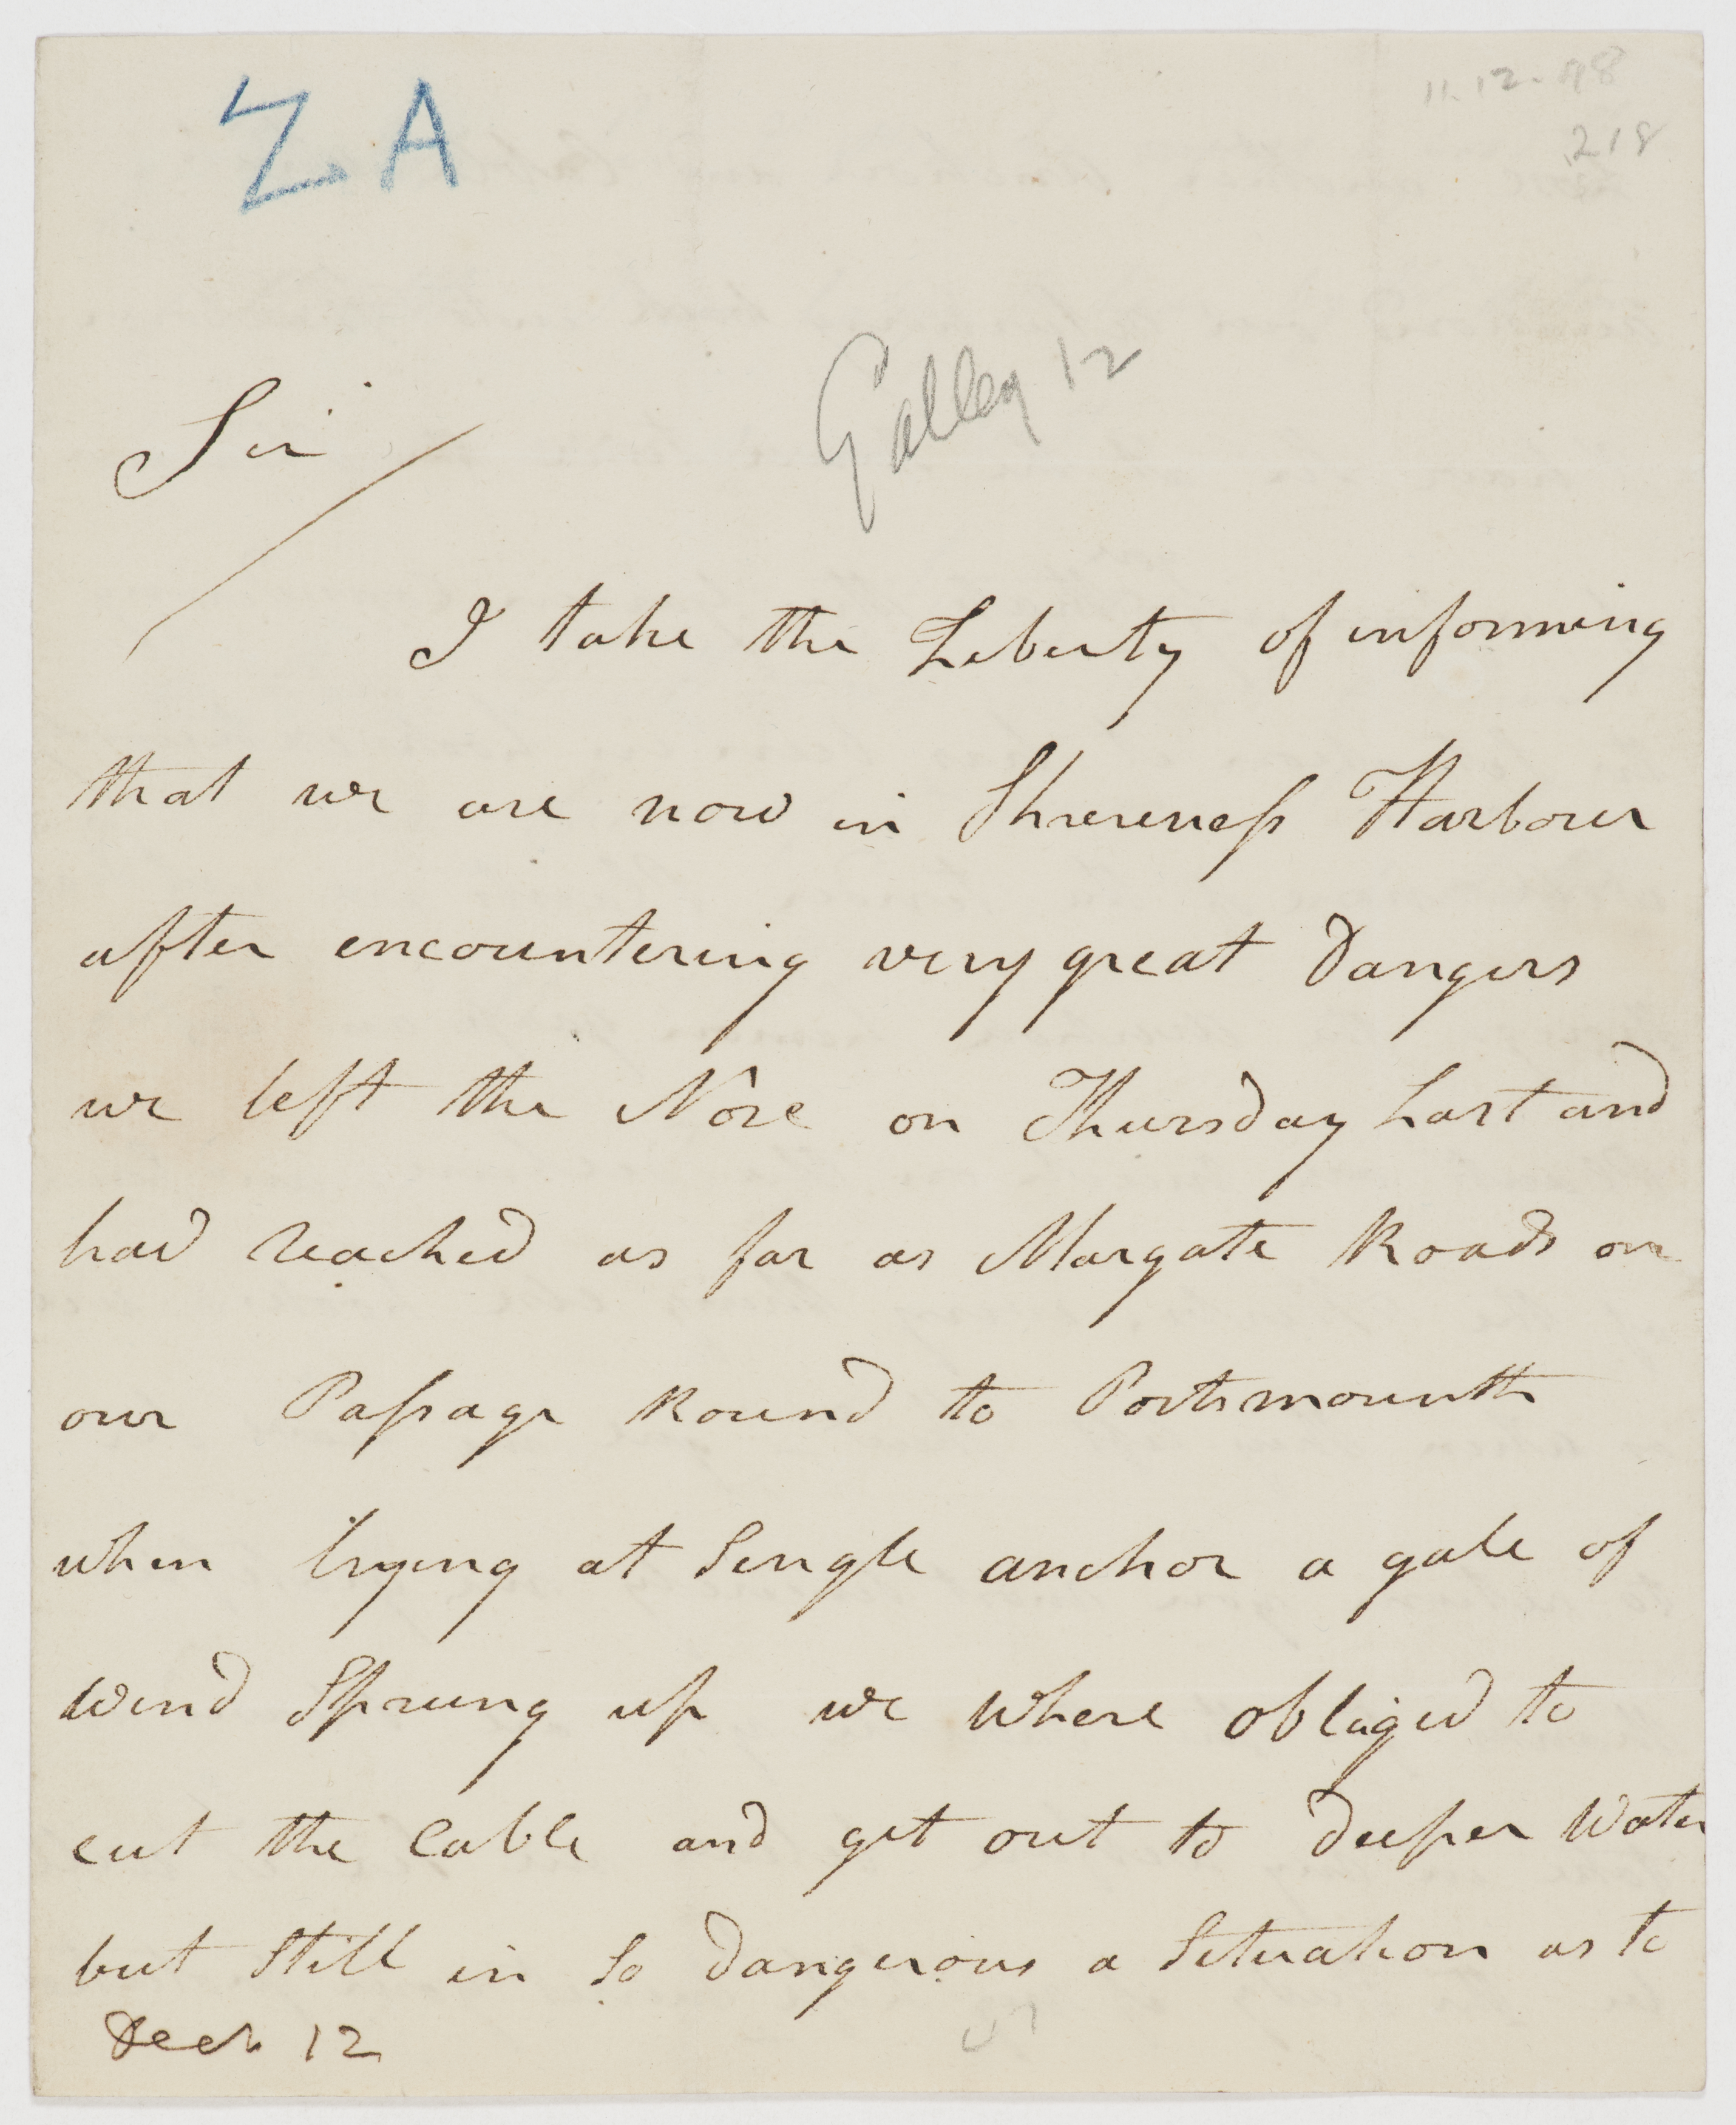 ZA
11.12.98
218
Galley 12
Sir
I take the Liberty of informing
that we are now in Sheereness Harbour
after encountering very great Dangers
we left the Nore on Thursday Last and
had reached as far as Margate Roads on
our Passage Round to Portsmounth
when lying at Single anchor a gale of
wind Sprung up we where obliged to
cut the Cable and get out to deeper Water
but Still in So dangerous a Situation as to
Decr 12